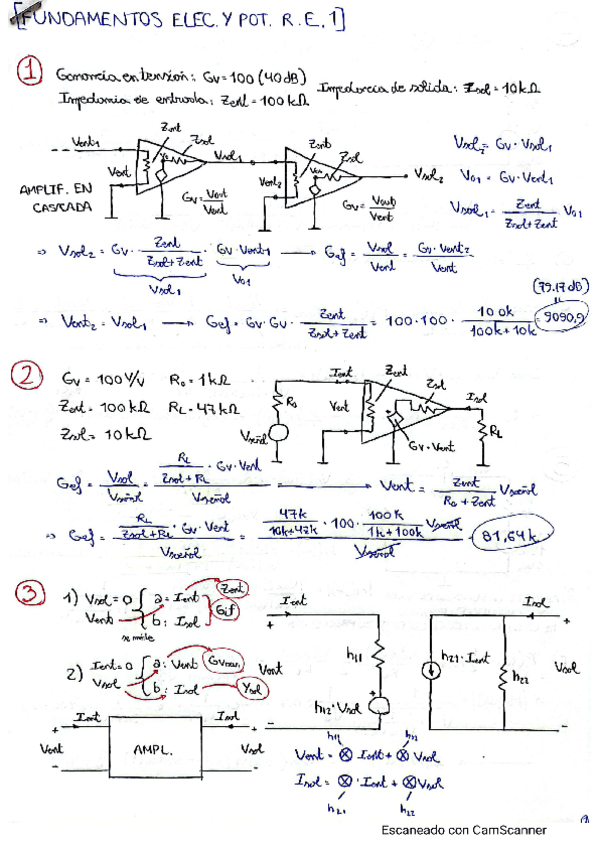 [FUNDAMENTOS ELEC. Y POT. R.E.1]
1 Ganancia en tensión: Gv=100 (40dB)
Impedancia de salida: Zsal=10kΩ
Impedancia de entrada: Zent=100kΩ
Vent1 Zent Zsal Vsal1 Zent Zsal Vsal2
Vent Vent2
AMPLIF. EN
CASCADA
Gv=Vout/Vent Gv=Vout/Vent
Vsal2=Gv·Vsal1
Vo1=Gv·Vent1
Vsal1=Zent/(Zsal+Zent) Vo1
⇒ Vsal2=Gv·Zent/(Zsal+Zent)·Gv·Vent1 → Gef=Vsal/Vent=Gv·Vent2/Vent
Vsal1 Vo1
(79.17dB)
⇒ Vent2=Vsal1 → Gef=Gv·Gv·Zent/(Zsal+Zent)=100·100·100k/(100k+10k)=9090,9
2 Gv=100V/V Ro=1kΩ
Zent=100kΩ RL=47kΩ
Zsal=10kΩ
Ient Zent Zsal Isal
Ro Vent RL
Vseñal Gv·Vent
Gef=Vsal/Vseñal=(RL/(Zsal+RL)·Gv·Vent)/Vseñal → Vent=Zent/(Ro+Zent) Vseñal
⇒ Gef=(RL/(Zsal+RL)·Gv·Vent)/Vseñal=(47k/(10k+47k)·100·100k/(1k+100k) Vseñal)/Vseñal=81,64k
3 1) Vsal=0 { a=Ient Zent
Vent b: Isal Gif
se mide
2) Ient=0 { a: Vent
Vsal b: Isal Ysal
Ient Isal
Vent AMPL. Vsal
Ient Isal
Vent h11 h21·Ient h22 Vsal
h12·Vsal
h11 h12
Vent=⊗ Ient+⊗ Vsal
Isal=⊗·Ient+⊗Vsal
h21 h22
Escaneado con CamScanner